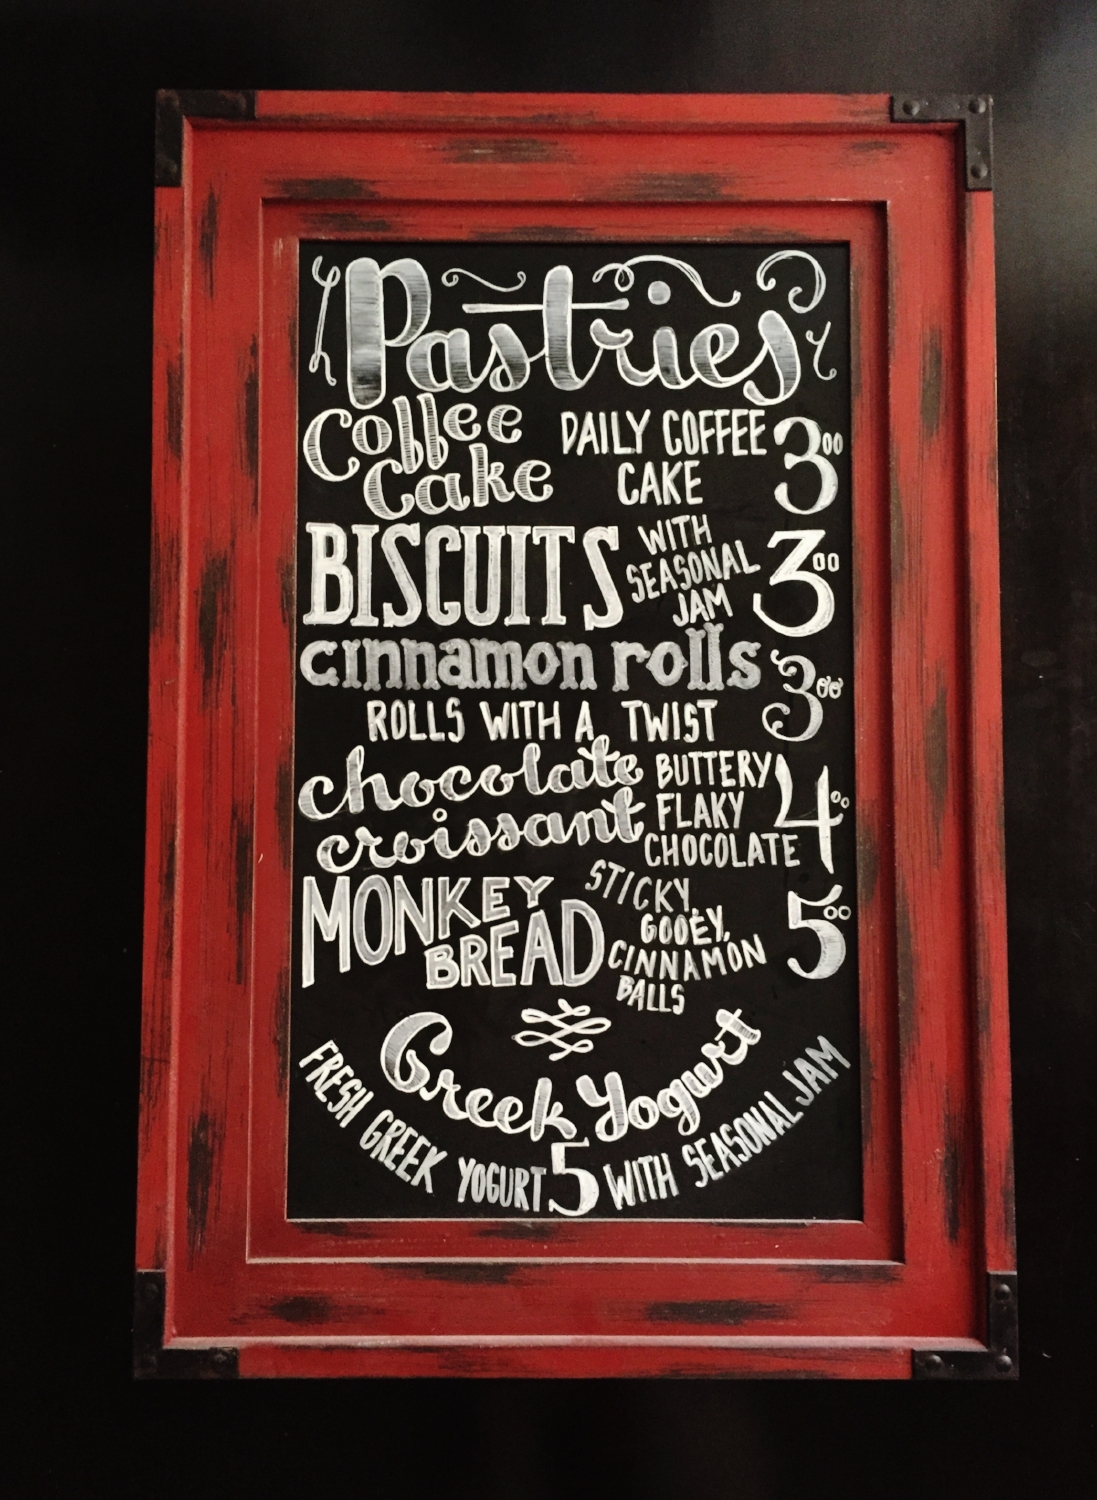 Pastries
Coffee Cake DAILY COFFEE CAKE 3.00
BISCUITS WITH SEASONAL JAM 3.00
cinnamon rolls 3.00
ROLLS WITH A TWIST
chocolate croissant BUTTERY FLAKY CHOCOLATE 4.00
MONKEY BREAD STICKY, GOOEY, CINNAMON BALLS 5.00
Greek Yogurt
FRESH GREEK YOGURT 5 WITH SEASONAL JAM